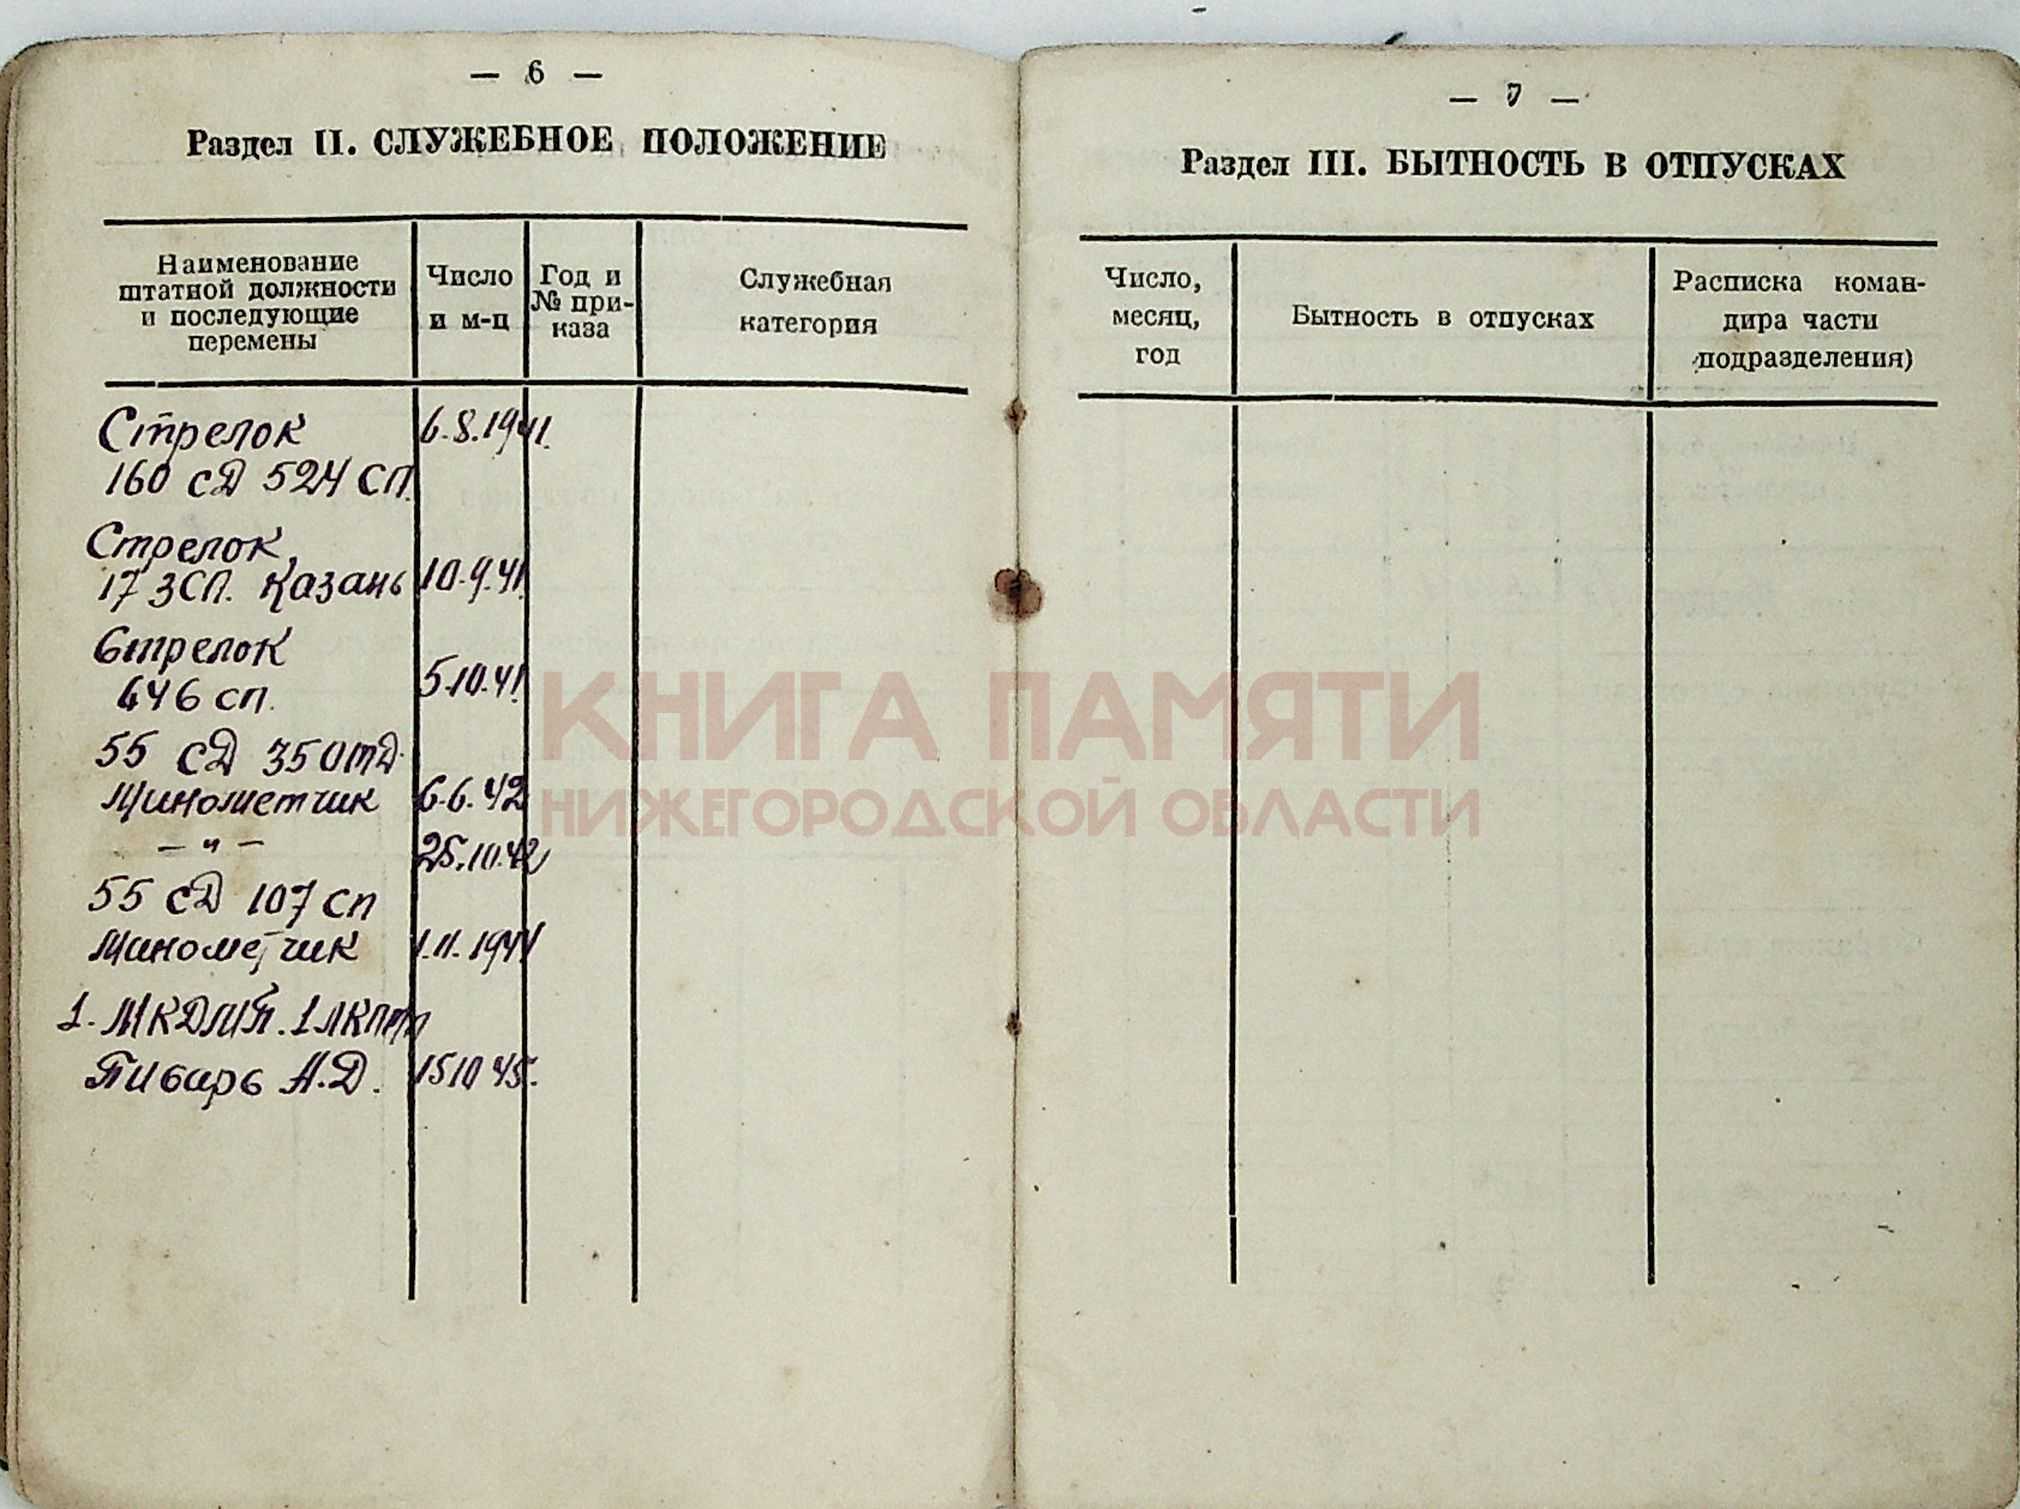 — 6 —
Раздел II. СЛУЖЕБНОЕ ПОЛОЖЕНИЕ
Наименование штатной должности и последующие перемены
Число и м-ц
Год и № при-каза
Служебная категория
Стрелок 6.8.1941.
160 сД 524 СП.
Стрелок
17 ЗСП. Казань 10.9.41.
Стрелок
646 сп. 5.10.41
55 сД 35 ОтД.
Минометчик 6.6.42
— " — 25.10.42
55 сД 107 сп
Минометчик 1.11.1944
1.
Писарь А.Д. 15 10 45.
— 7 —
Раздел III. БЫТНОСТЬ В ОТПУСКАХ
Число, месяц, год
Бытность в отпусках
Расписка коман-дира части подразделения)
КНИГА ПАМЯТИ
НИЖЕГОРОДСКОЙ ОБЛАСТИ